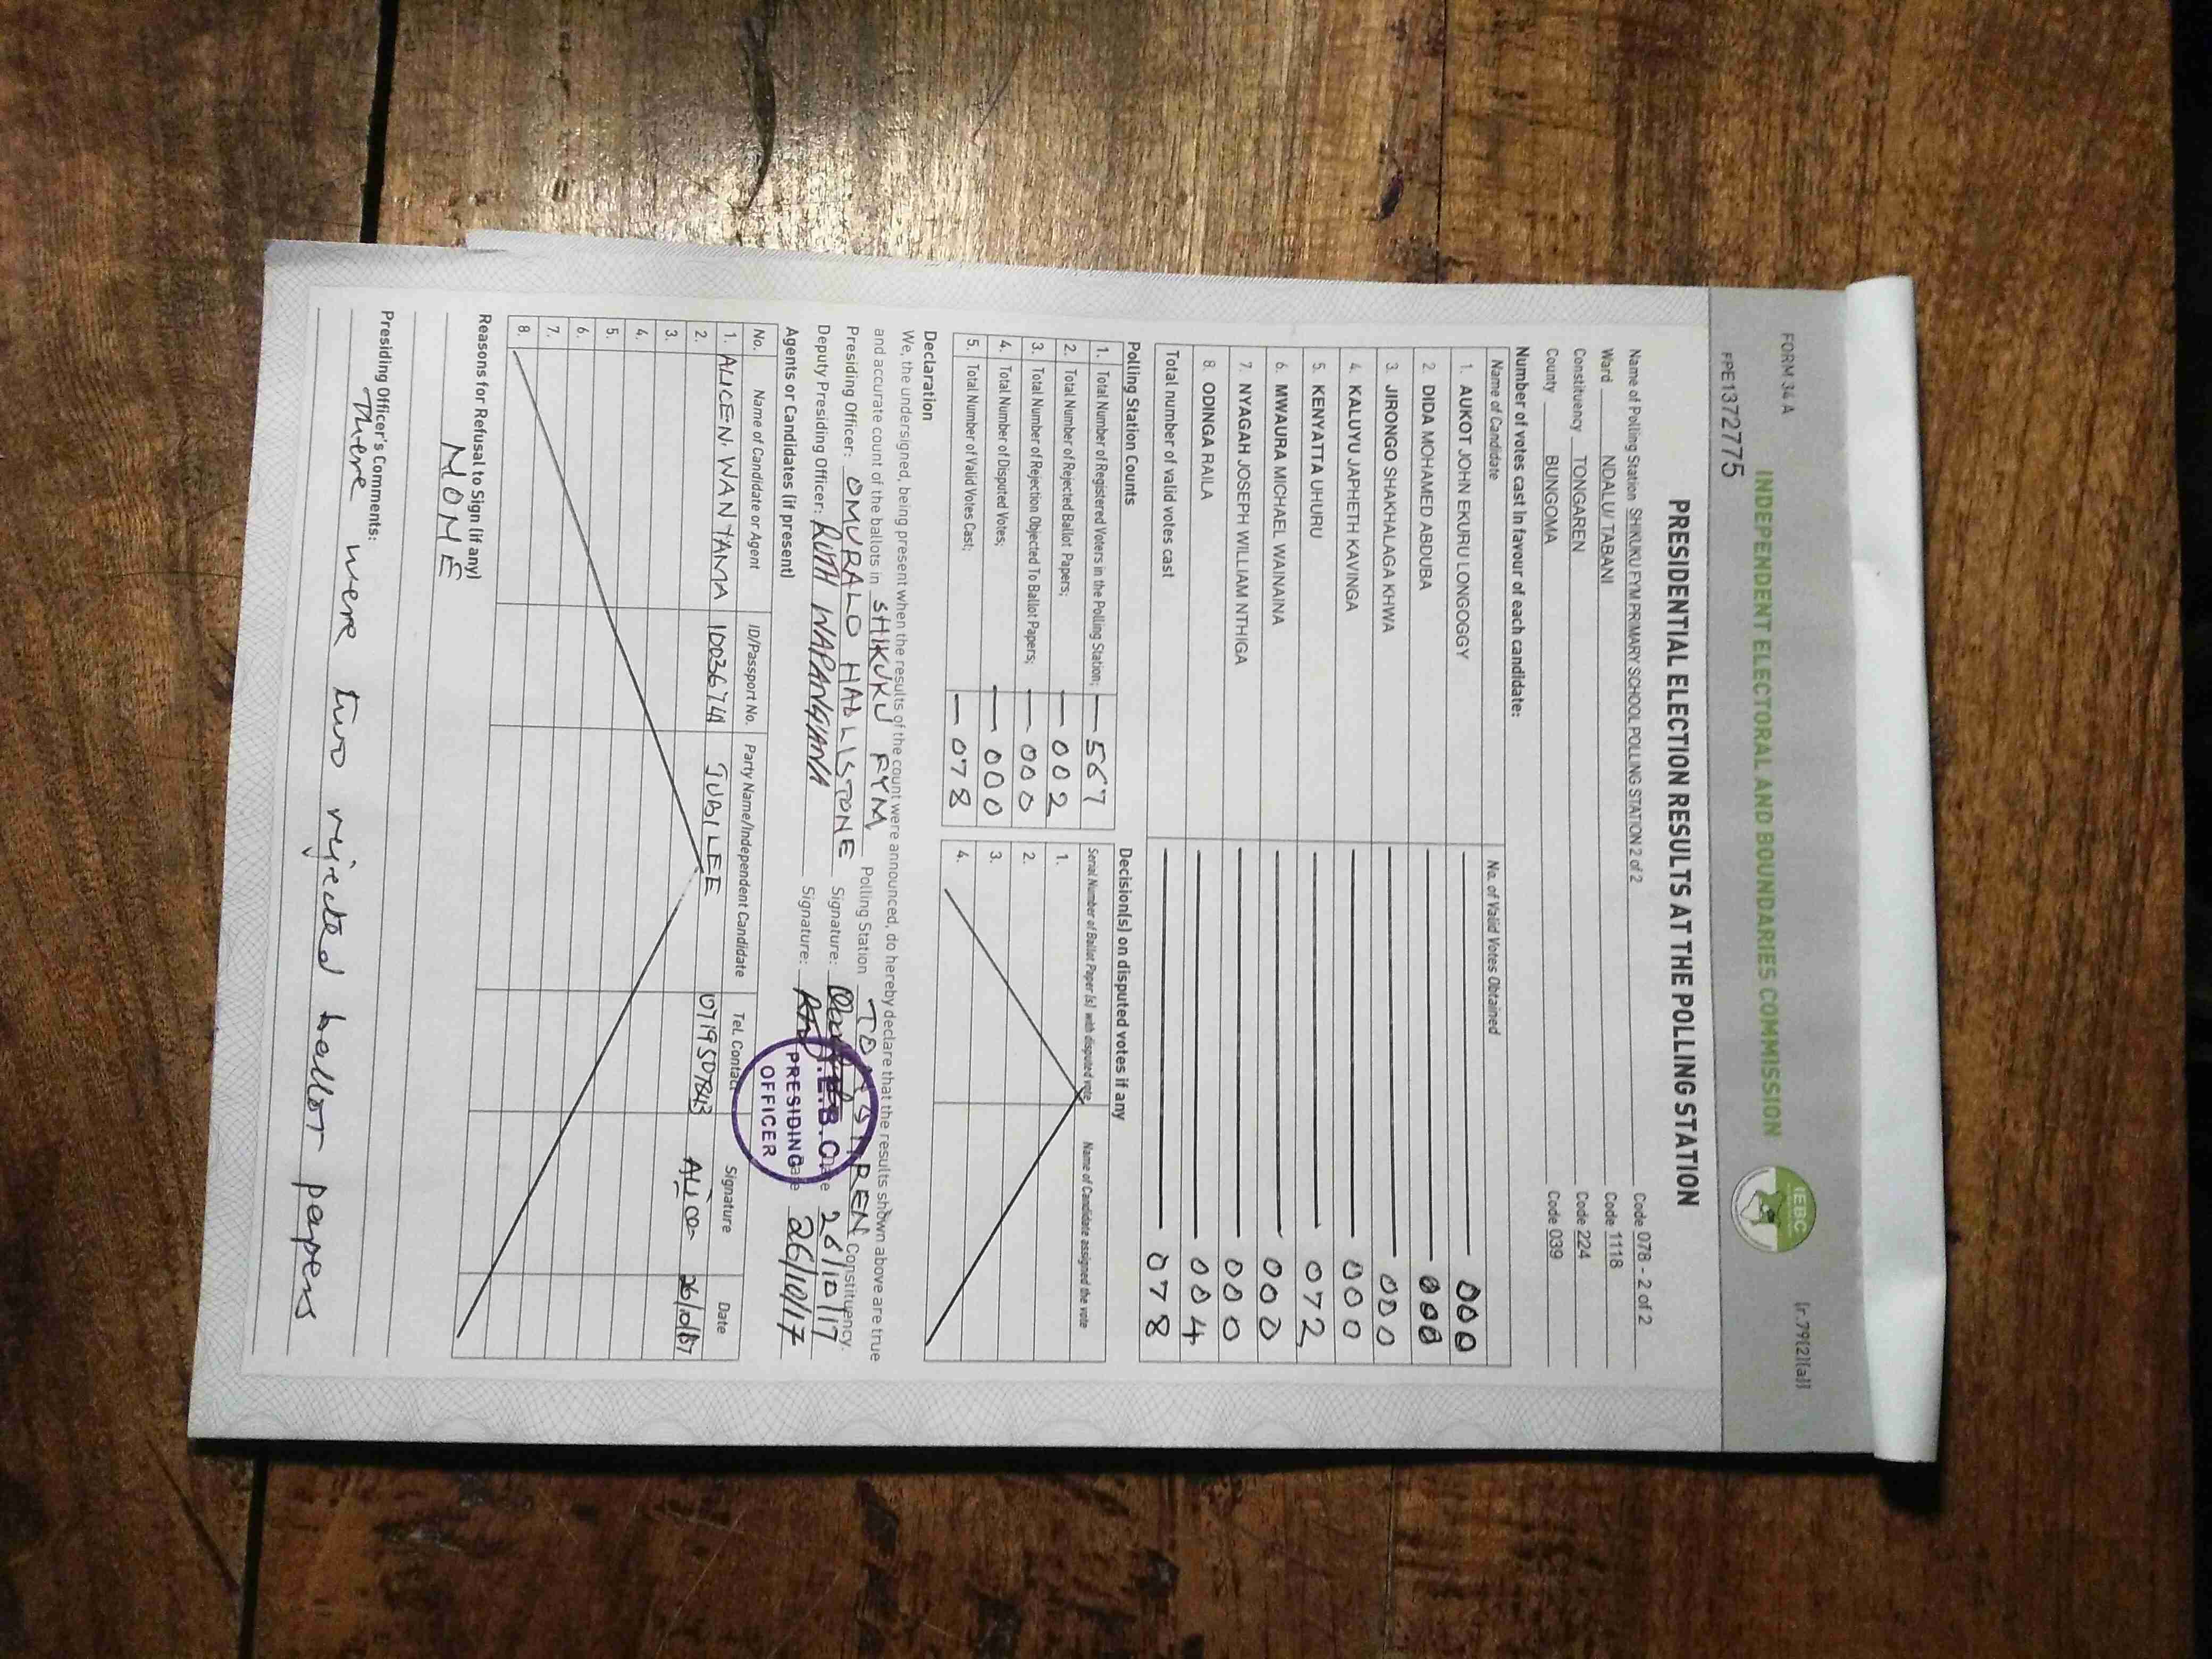 FORM 34 A
(r.79(2)(a))
INDEPENDENT ELECTORAL AND BOUNDARIES COMMISSION
IEBC
PPE1372775
PRESIDENTIAL ELECTION RESULTS AT THE POLLING STATION
Name of Polling Station SHIKUKU FYM PRIMARY SCHOOL POLLING STATION 2 of 2 Code 078 - 2 of 2
Ward NDALU/ TABANI Code 1118
Constituency TONGAREN Code 224
County BUNGOMA Code 039
Number of votes cast in favour of each candidate:
Name of Candidate No. of Valid Votes Obtained
1. AUKOT JOHN EKURU LONGOGGY 000
2. DIDA MOHAMED ABDUBA 000
3. JIRONGO SHAKHALAGA KHWA 000
4. KALUYU JAPHETH KAVINGA 000
5. KENYATTA UHURU 072
6. MWAURA MICHAEL WAINAINA 000
7. NYAGAH JOSEPH WILLIAM NTHIGA 000
8. ODINGA RAILA 004
Total number of valid votes cast 078
Polling Station Counts
1. Total Number of Registered Voters in the Polling Station; 567
2. Total Number of Rejected Ballot Papers; 002
3. Total Number of Rejection Objected To Ballot Papers; 000
4. Total Number of Disputed Votes; 000
5. Total Number of Valid Votes Cast; 078
Decision(s) on disputed votes if any
Serial Number of Ballot Paper (s) with disputed vote Name of Candidate assigned the vote
1.
2.
3.
4.
Declaration
We, the undersigned, being present when the results of the count were announced, do hereby declare that the results shown above are true
and accurate count of the ballots in SHIKUKU FYM Polling Station Constituency.
Presiding Officer: OMURALO HABLISTONE Signature: 26/10/17
Deputy Presiding Officer: RUTH WAPANGWANA Signature: 26/10/17
I.E.B.C
PRESIDING
OFFICER
Agents or Candidates (if present)
No. Name of Candidate or Agent ID/Passport No. Party Name/Independent Candidate Tel. Contact Signature Date
1. ALICE N. WANTAMA JUBILEE 0719507843 Alice 26/10/17
2.
3.
4.
5.
6.
7.
8.
Reasons for Refusal to Sign (if any)
NONE
Presiding Officer's Comments:
There were two rejected ballot papers